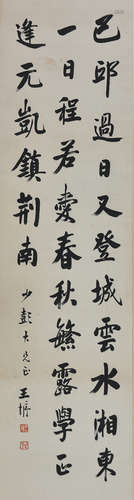 巴邱過日又登城雲水湘東
一日程若賣春秋繁露學正
逢元凱鎮荆南
少彭大兄正
王